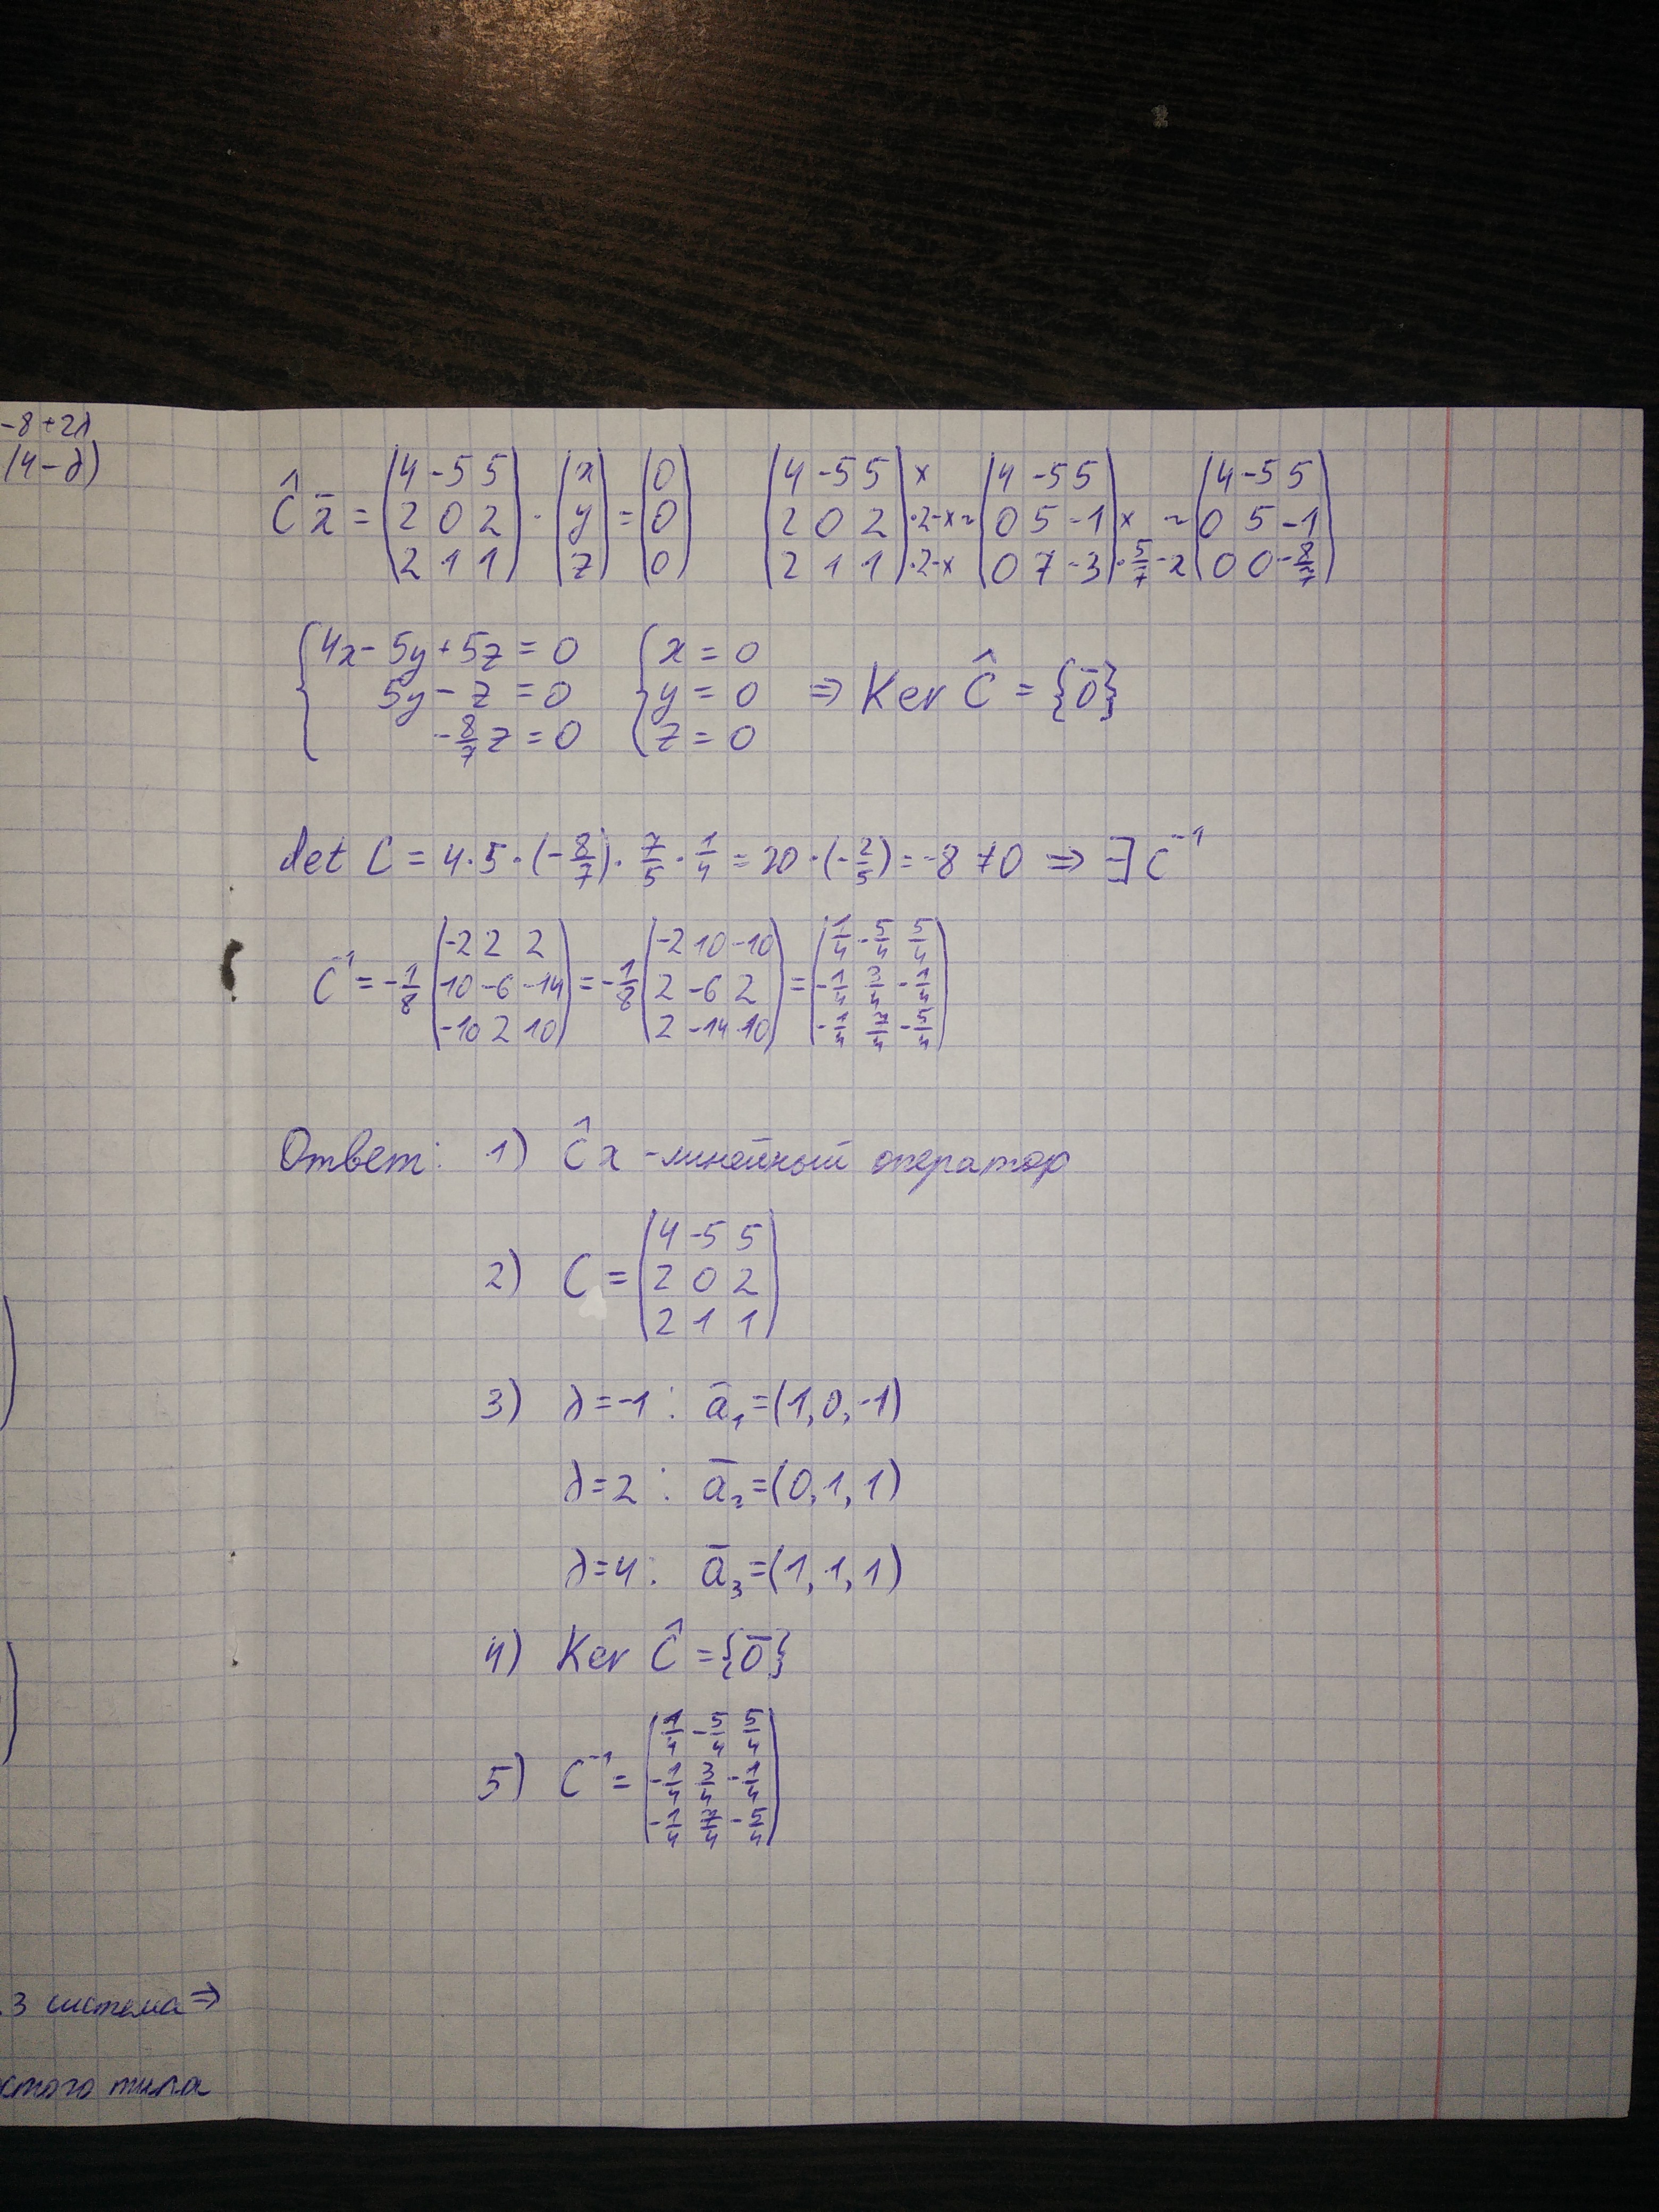 -8+2λ
(4-λ)
Ĉx̄ = (4 -5 5; 2 0 2; 2 1 1) · (x; y; z) = (0; 0; 0)   (4 -5 5; 2 0 2; 2 1 1) x ·2-x ·2-x ~ (4 -5 5; 0 5 -1; 0 7 -3) x ·5/7-x ~ (4 -5 5; 0 5 -1; 0 0 -8/7)
{4x-5y+5z=0   {x=0
5y-z=0   y=0   ⇒ Ker Ĉ = {ō}
-8/7 z=0   z=0
det C = 4·5·(-8/7)·7/5·1/4 = 20·(-2/5) = -8 ≠ 0 ⇒ ∃ C⁻¹
C⁻¹ = -1/8 (-2 2 2; 10 -6 -14; -10 2 10) = -1/8 (-2 10 -10; 2 -6 2; 2 -14 10) = (1/4 -5/4 5/4; -1/4 3/4 -1/4; -1/4 7/4 -5/4)
Ответ: 1) Ĉx - линейный оператор
2) C = (4 -5 5; 2 0 2; 2 1 1)
3) λ=-1: ā₁=(1,0,-1)
λ=2: ā₂=(0,1,1)
λ=4: ā₃=(1,1,1)
4) Ker Ĉ = {ō}
5) C⁻¹ = (1/4 -5/4 5/4; -1/4 3/4 -1/4; -1/4 7/4 -5/4)
3 система ⇒
стого типа